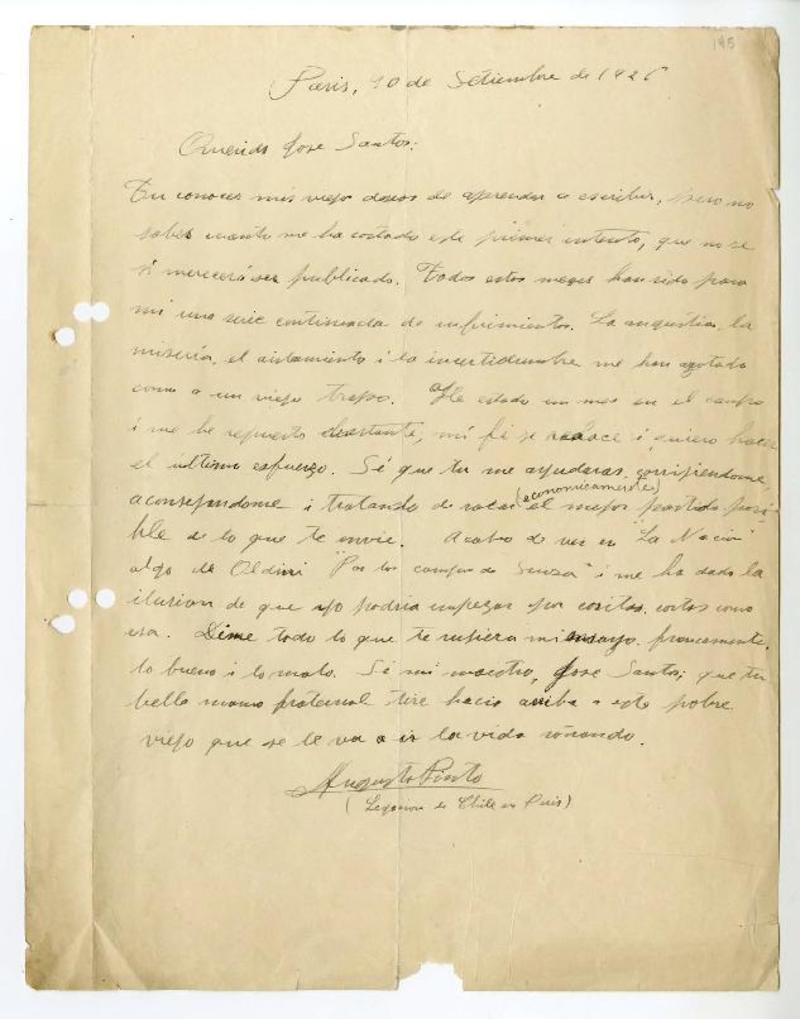 195
Paris, 10 de Setiembre de 192
Querido José Santos:
Tu conoces mis viejos deseos de aprender a escribir, pero no
sabes cuanto me ha costado este primer intento, que no se
si merecerá ser publicado. Todos estos meses han sido para
mi una serie continuada de sufrimientos. La angustia, la
miseria, el aislamiento i la incertidumbre me han agotado
como a un viejo trapo. He estado un mes en el campo
i me he repuesto bastante, mi fé se i quiero hacer
el último esfuerzo. Sé que tu me ayudaras, corrijiendome,
aconsejandome i tratando de sacar (economicamente) el mejor partido posi-
ble de lo que te envie. Acabo de ver en "La Nacion"
algo de Oldini "Por los campos de Suiza" i me ha dado la
ilusion de que yo podria empezar por cositas cortas como
esa. Dime todo lo que te sujiera mi ensayo, francamente,
lo bueno i lo malo. Sé mi maestro, José Santos; que tu
bella mano fraternal tire hacia arriba a este pobre
viejo que se le va a ir la vida soñando.
Augusto Pinto
(Legacion de Chile en Paris)